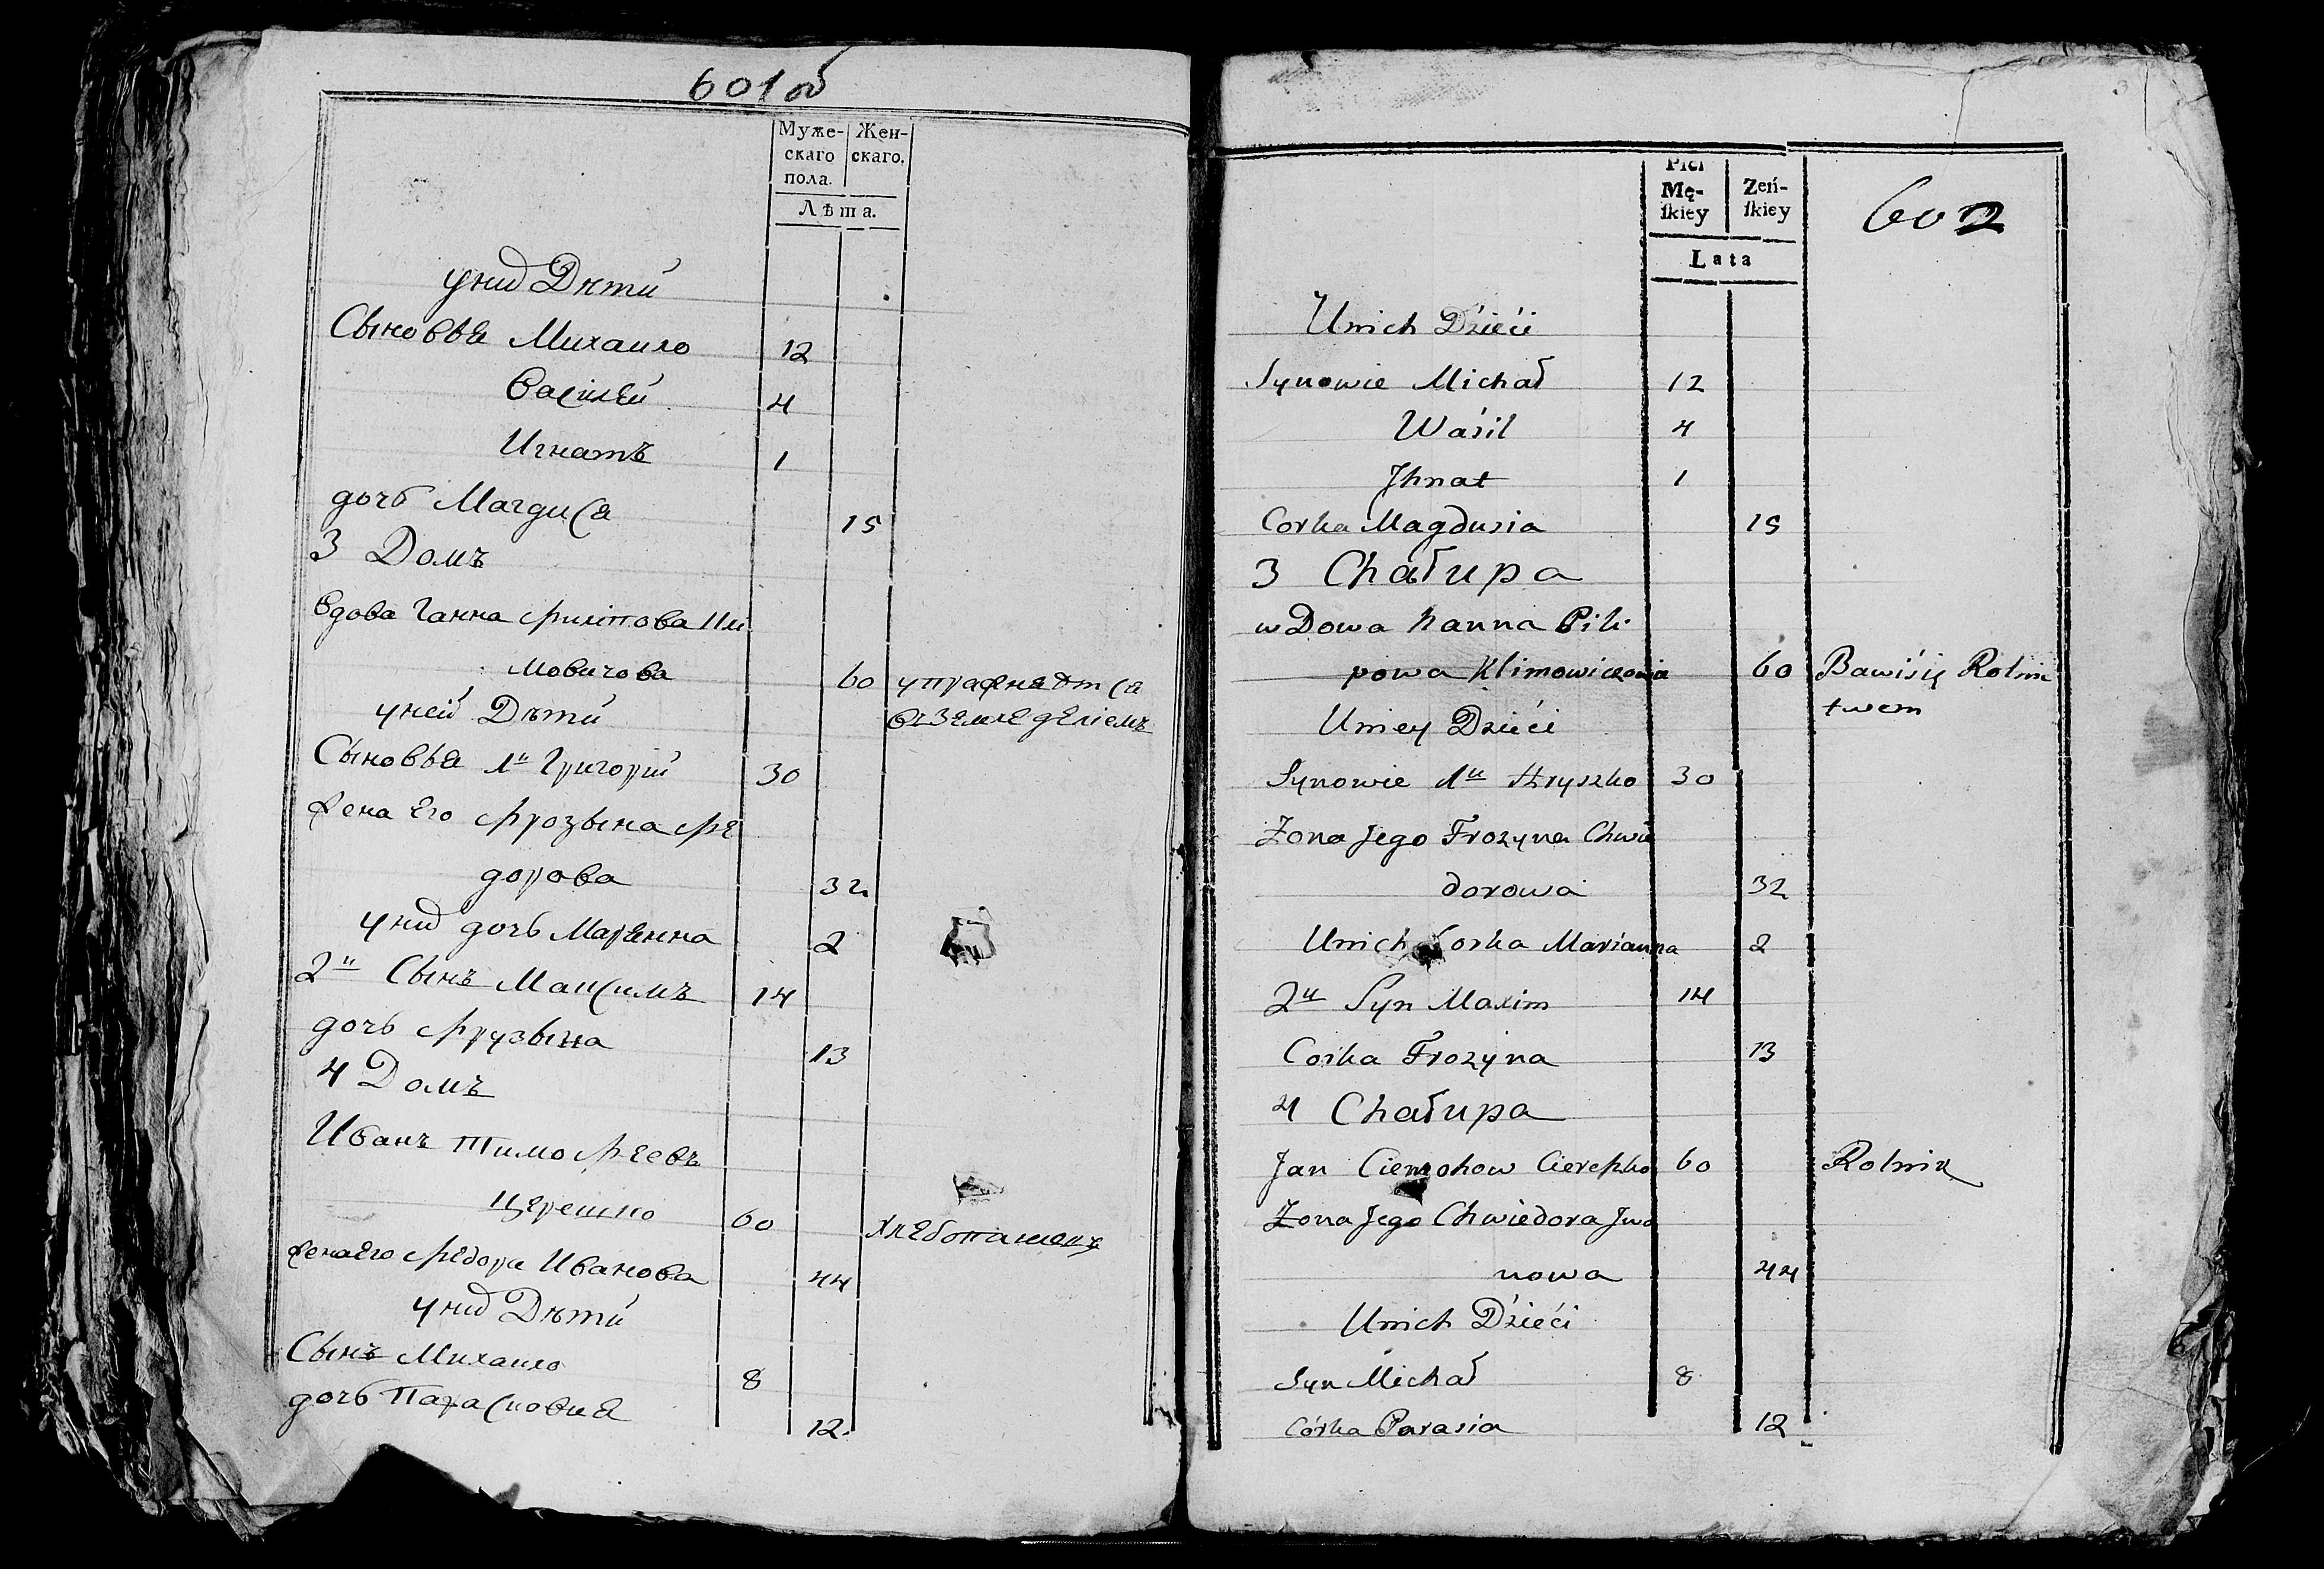 601 об
Муже-
скаго
пола.
Жен-
скаго.
Лѣта.
у них Дѣти
Сыновья Михаило 12
Василей 4
Игнатъ 1
дочь Магдися 15
3 Домъ
Вдова Ганна Филипова Кли
мовичова 60 упражняется
у ней Дѣти въ земледелiемъ
Сыновья 1й Григорiй 30
Жена Его Фрозына Фе
дорова 32
у них дочь Марянна 2
2й Сынъ Максимъ 14
дочь Фрузына 13
4 Домъ
Иванъ Тимофеевъ
Церешко 60 хлебопашецъ
жена Его Федора Иванова 44
у них Дѣти
Сынъ Михаило 8
дочь Парасковия 12.
602
Płci
Mę-
skiey
Żeń-
skiey
Lata
Unich Dzieći
Synowie Michał 12
Waśil 4
Jhnat 1
Corka Magdusia 15
3 Chałupa
wDowa hanna Pili
powa Klimowiczowa 60 Bawiśię Rolni
Uniey Dzieći ctwem
Synowie 1й Hryszko 30
Żona Jego Frozyna Chwie
dorowa 32
Unich Corka Marianna 2
2й Syn Maxim 14
Corka Frozyna 13
4 Chałupa
Jan Ciemohow Ciereszko 60 Rolnik
Żona Jego Chwiedora Jwa
nowa 44
Unich Dzieći
Syn Michał 8
Córka Parasia 12